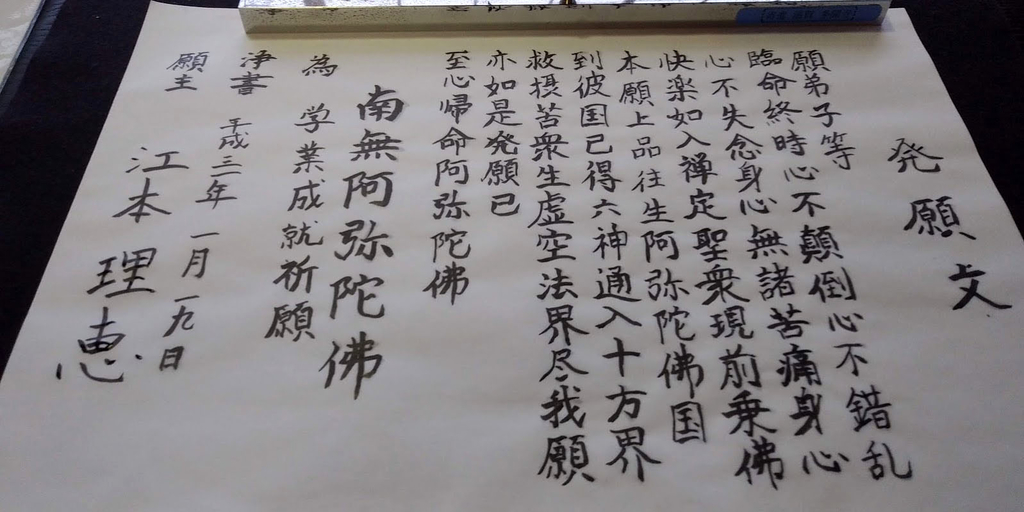 発願文
願弟子等
臨命終時心不顛倒心不錯乱
心不失念身心無諸苦痛身心
快楽如入禅定聖衆現前乗佛
本願上品往生阿弥陀佛国
到彼国已得六神通入十方界
救摂苦衆生虚空法界尽我願
亦如是発願已
至心帰命阿弥陀佛
南無阿弥陀佛
為 学業成就祈願
浄書 平成三一年一月一九日
願主 江本理恵